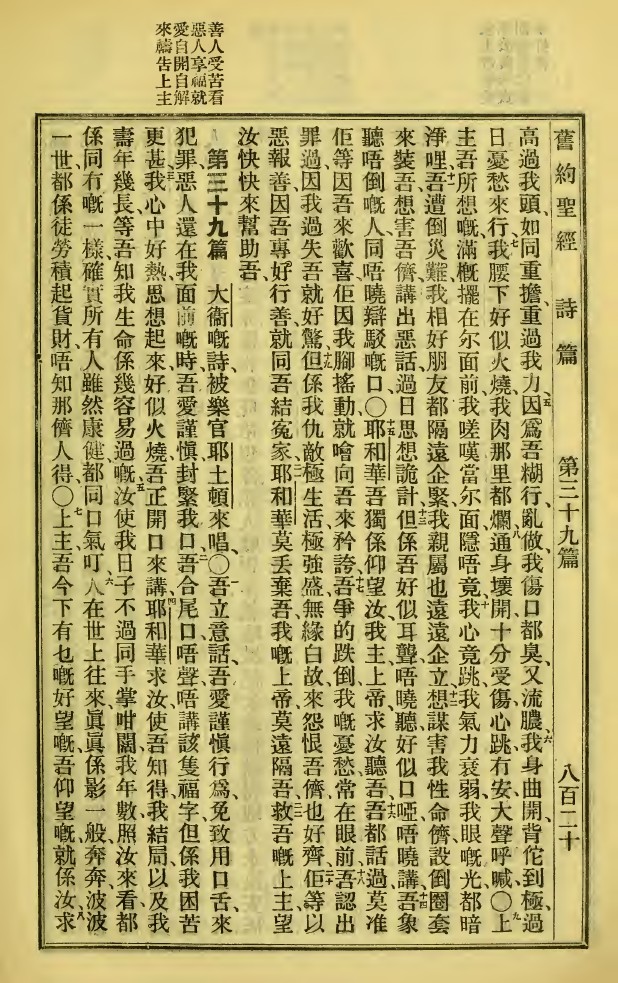 善人受苦看
惡人享福就
愛自開自解
來禱告上主
舊約聖經 詩篇 第三十九篇 八百二十
高過我頭、如同重擔、重過我力、五因爲吾糊行亂做、我傷口都臭、又流膿、六我身曲開背佗到極、過
日憂愁來行、七我腰下好似火燒、我肉那里都爛、八通身壞開、十分受傷、心跳冇安、大聲呼喊、〇九上
主、吾所想嘅、滿概擺在尔面前、我嗟嘆當尔面隱唔竟、十我心竟跳、我氣力衰弱、我眼嘅光都暗
淨哩、十一吾遭倒災難、我相好朋友都隔遠企緊、我親屬也遠遠企立、十二想謀害我性命儕、設倒圈套
來裝吾、想害吾儕、講出惡話、過日思想詭計、十三但係吾好似耳聾唔曉聽、好似口啞唔曉講、十四吾象
聽唔倒嘅人、同唔曉辯駁嘅口、〇十五耶和華、吾獨係仰望汝、我主上帝、求汝聽吾、十六吾都話過、莫准
佢等因吾來歡喜、佢因我脚搖動、就噲向吾來矜誇、十七吾爭的跌倒、我嘅憂愁常在眼前、十八吾認出
罪過、因我過失吾就好驚、十九但係我仇敵極生活、極強盛、無緣白故來怨恨吾儕、也好齊、二十佢等以
惡報善、因吾專好行善、就同吾結寃家、二一耶和華、莫丢棄吾、我嘅上帝、莫遠隔吾、二二救吾嘅上主、望
汝快快來幫助吾、
第三十九篇 大衞嘅詩、被樂官耶土頓來唱、〇一吾立意話、吾愛謹愼行爲、免致用口舌來
犯罪、惡人還在我面前嘅時、吾愛謹愼封緊我口、二吾合尾口唔聲唔講該隻福字、但係我困苦
更甚、三我心中好熱、思想起來好似火燒、吾正開口來講、四耶和華、求汝使吾知得我結局、以及我
壽年幾長、等吾知我生命係幾容易過嘅、五汝使我日子不過同手掌咁闊、我年數照汝來看、都
係同冇嘅一樣、確實所有人雖然康健、都同口氣叮、六人在世上往來、眞眞係影一般、奔奔波波
一世、都係徒勞、積起貨財、唔知那儕人得、〇七上主、吾今下有乜嘅好望嘅、吾仰望嘅就係汝、八求